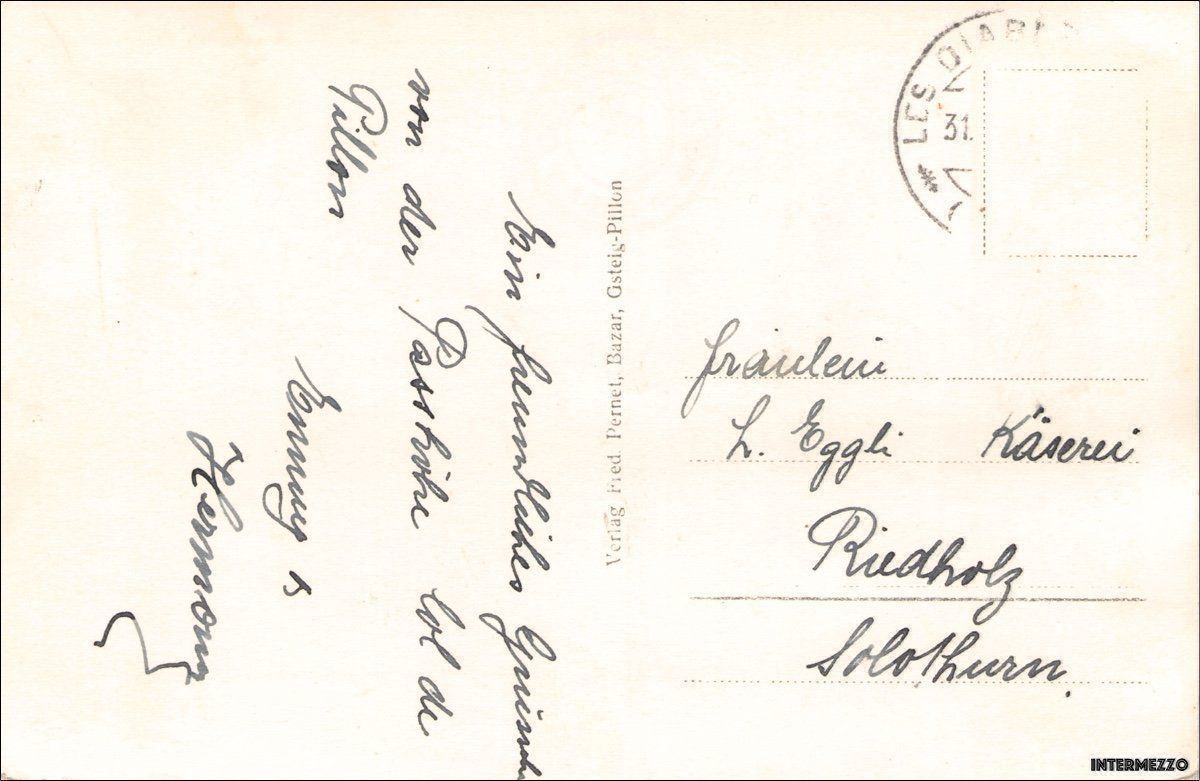 Ein freundliches Grüsschen
von der Passhöhe Col de
Pillon
Hermann
Verlag Fred. Pernet, Bazar, Gsteig-Pillon
* LES DIABL
31.
Fräulein
L. Eggli Käserei
Riedholz
Solothurn.
INTERMEZZO